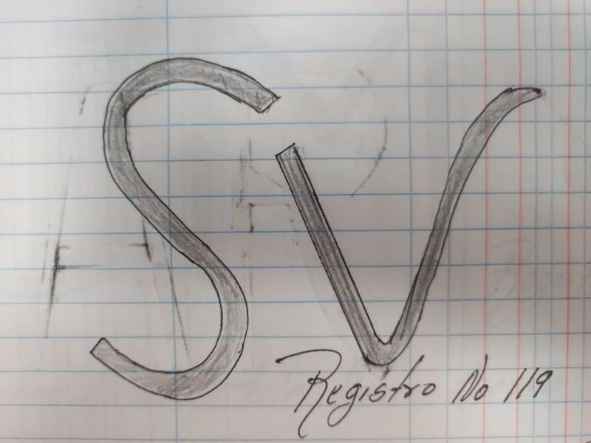 SV
Registro No 119